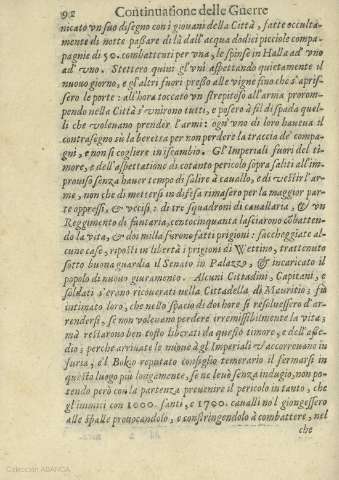 92 Continuatione delle Guerre
nicato vn suo disegno con i giouani della Città, fatte occulta-
mente di notte passare di là dall'acqua dodici picciole compa-
gnie di 50. combattenti per vna, le spinse in Halla ad vno
ad vno. Stettero quini gl'vni aspettando quietamente il
nuouo giorno, e gl'altri fuori presso alle vigne fino che s'apris-
sero le porte: all'hora toccato vn strepitoso all'arma prorom-
pendo nella Città s'vnirono tutti, e pasero à fil di spada quel-
li che voleuano prender l'armi: ogn'vno di loro haueua il
contrasegno sù la beretta per non perdere la traccia de' compa-
gni, e non si cogliere in iscambio. Gl'Imperiali fuori del ti-
more, e dell'aspettatione di cotanto pericolo sopra saliti all'im-
prouiso senza hauer tempo di salire à cauallo, e di vestir l'ar-
me, non che di mettersi in difesa rimasero per la maggior par-
te oppressi, & vccisi: di tre squadroni di cauallaria, & vn
Reggimento di fanteria, centocinquanta lasciarono cõbatten-
do la vita, & doi milla furono fatti prigioni: saccheggiate al-
cune case, riposti in libertà i prigioni di Wettino, trattenuto
sotto buona guardia il Senato in Palazzo, & incaricato il
popolo di nuouo giuramento. Alcuni Cittadini, Capitani, e
soldati s'erano ricourati nella Cittadella di Mauritio; fù
intimato loro, che nello spacio di doi hore si resoluessero d'ar-
rendersi, se non voleuano perdere irremissibilmente la vita;
mà restarono ben tosto liberati da questo timore, e dell'asse-
dio; perche arriuate le nuoue à gl'Imperiali v'accorreuano in
furia, e'l Bokio reputato consiglio temerario il fermarsi in
questo luogo più longamente, se ne leuò senza indugio, non po-
tendo però con la partenza preuenire il pericolo in tanto, che
gl'inimici con 1000. fanti, e 1700. caualli no'l giongessero
alle spalle prouocandolo, e constringendolo à combattere, nel
che
Colección ABANCA